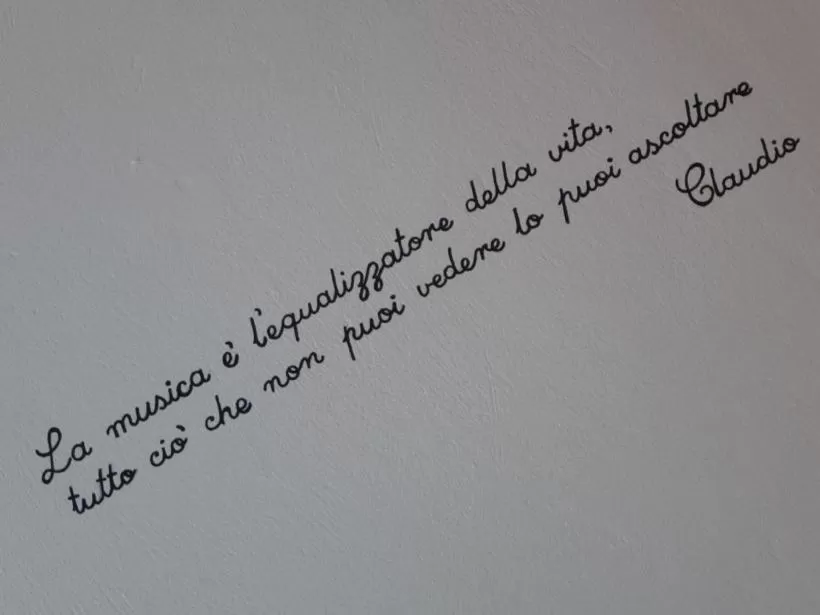 La musica è l'equalizzatore della vita,
tutto ciò che non puoi vedere lo puoi ascoltare
Claudio